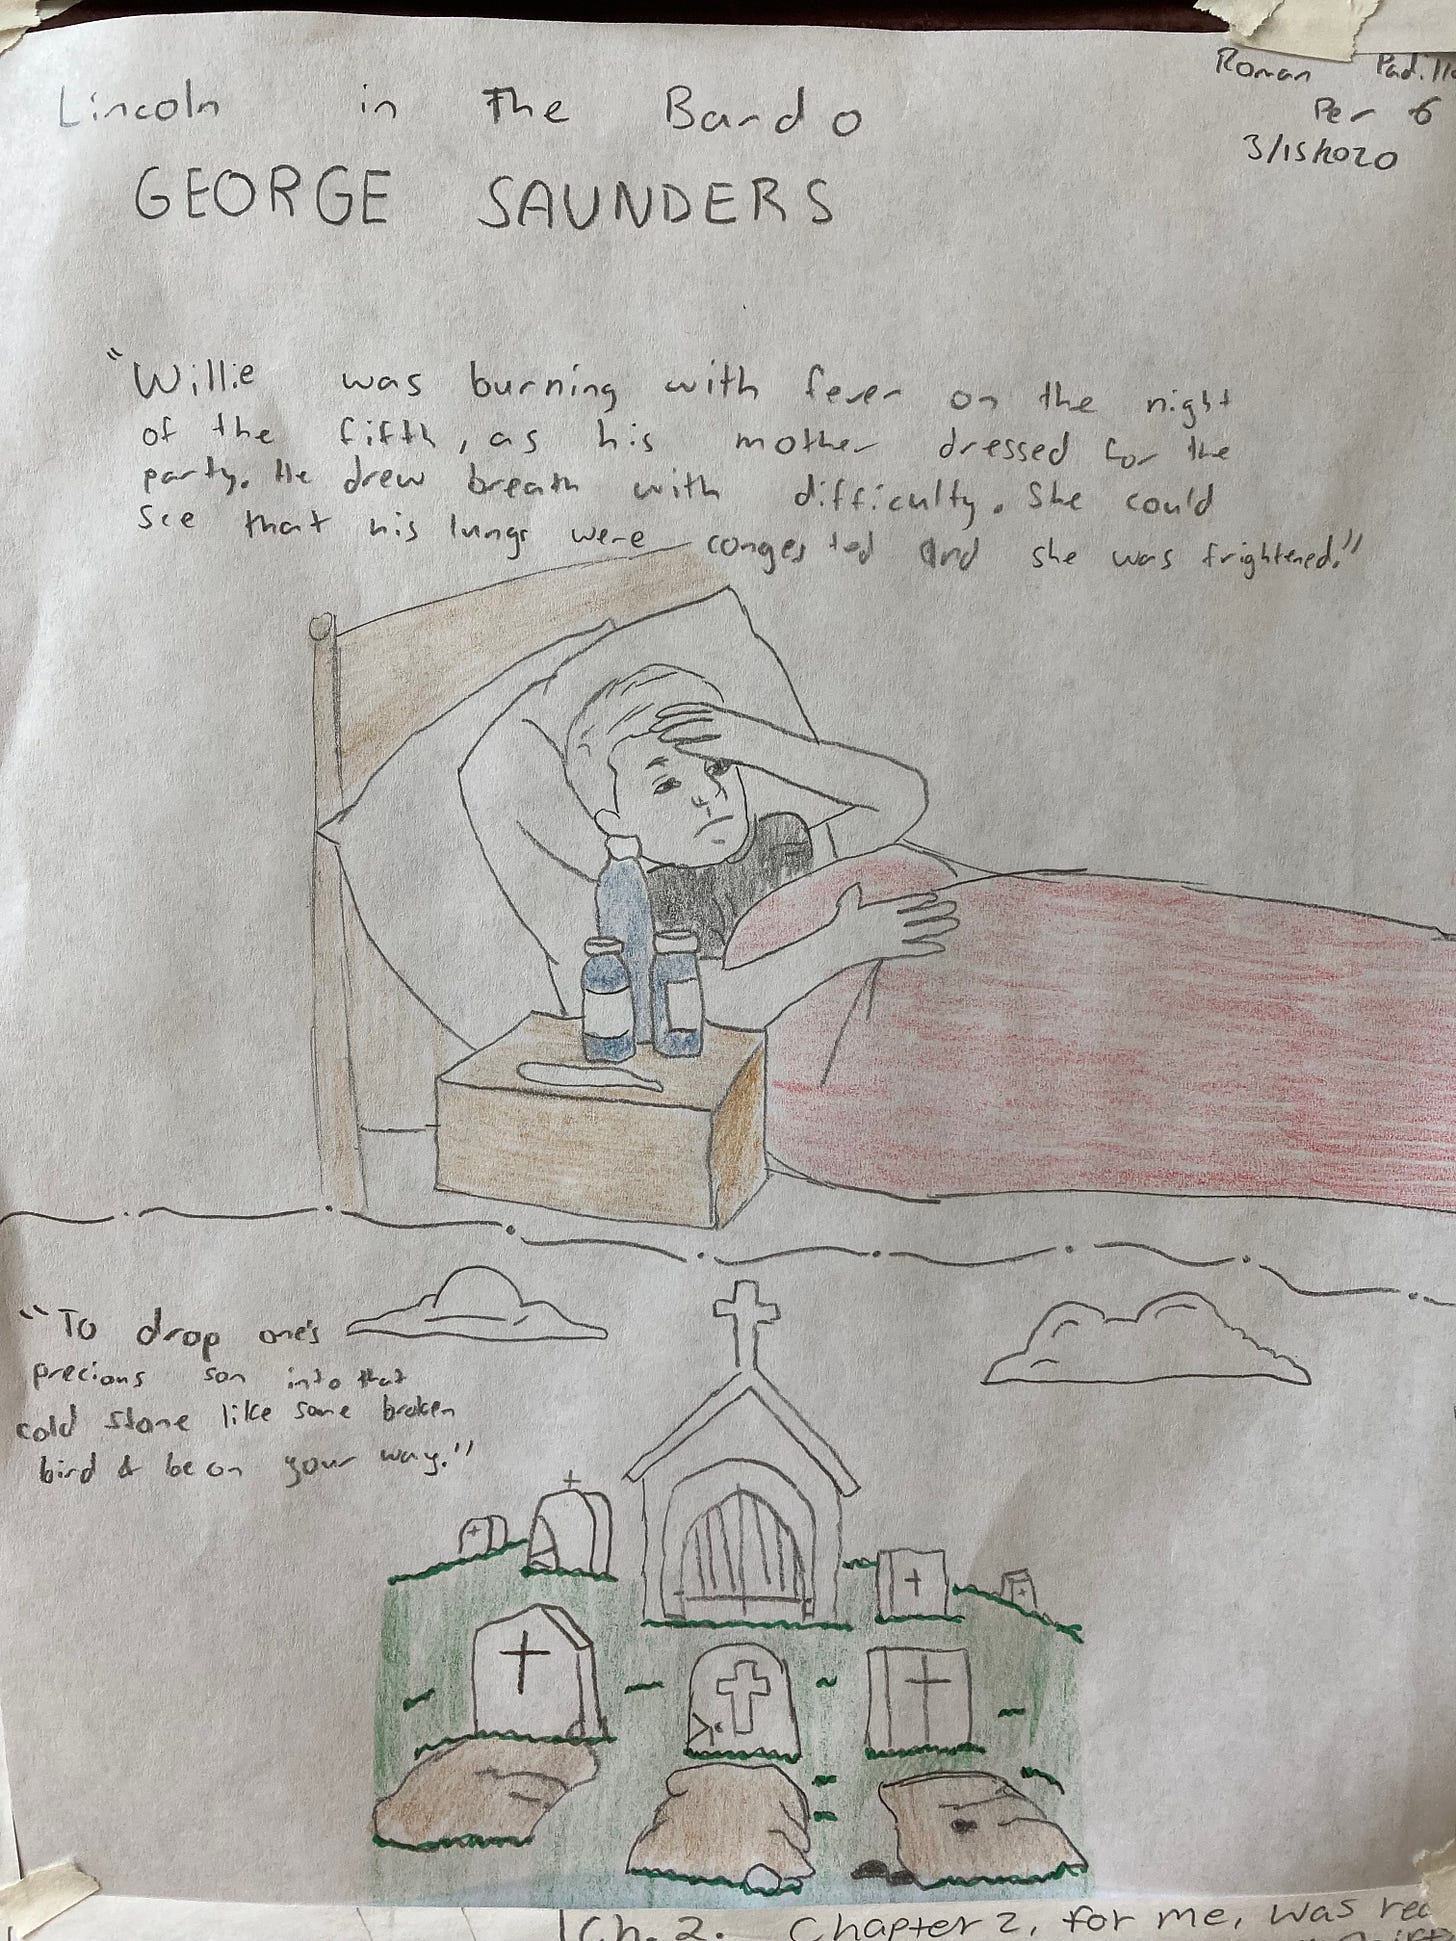 Lincoln in The Bardo
GEORGE SAUNDERS
Roman Padilla
Per 6
3/15/2020
"Willie was burning with fever on the night
of the fifth, as his mother dressed for the
party. He drew breath with difficulty. She could
see that his lungs were congested and she was frightened."
"To drop one's
precious son into that
cold stone like some broken
bird & be on your way."
Ch. 2. Chapter 2, for me, was